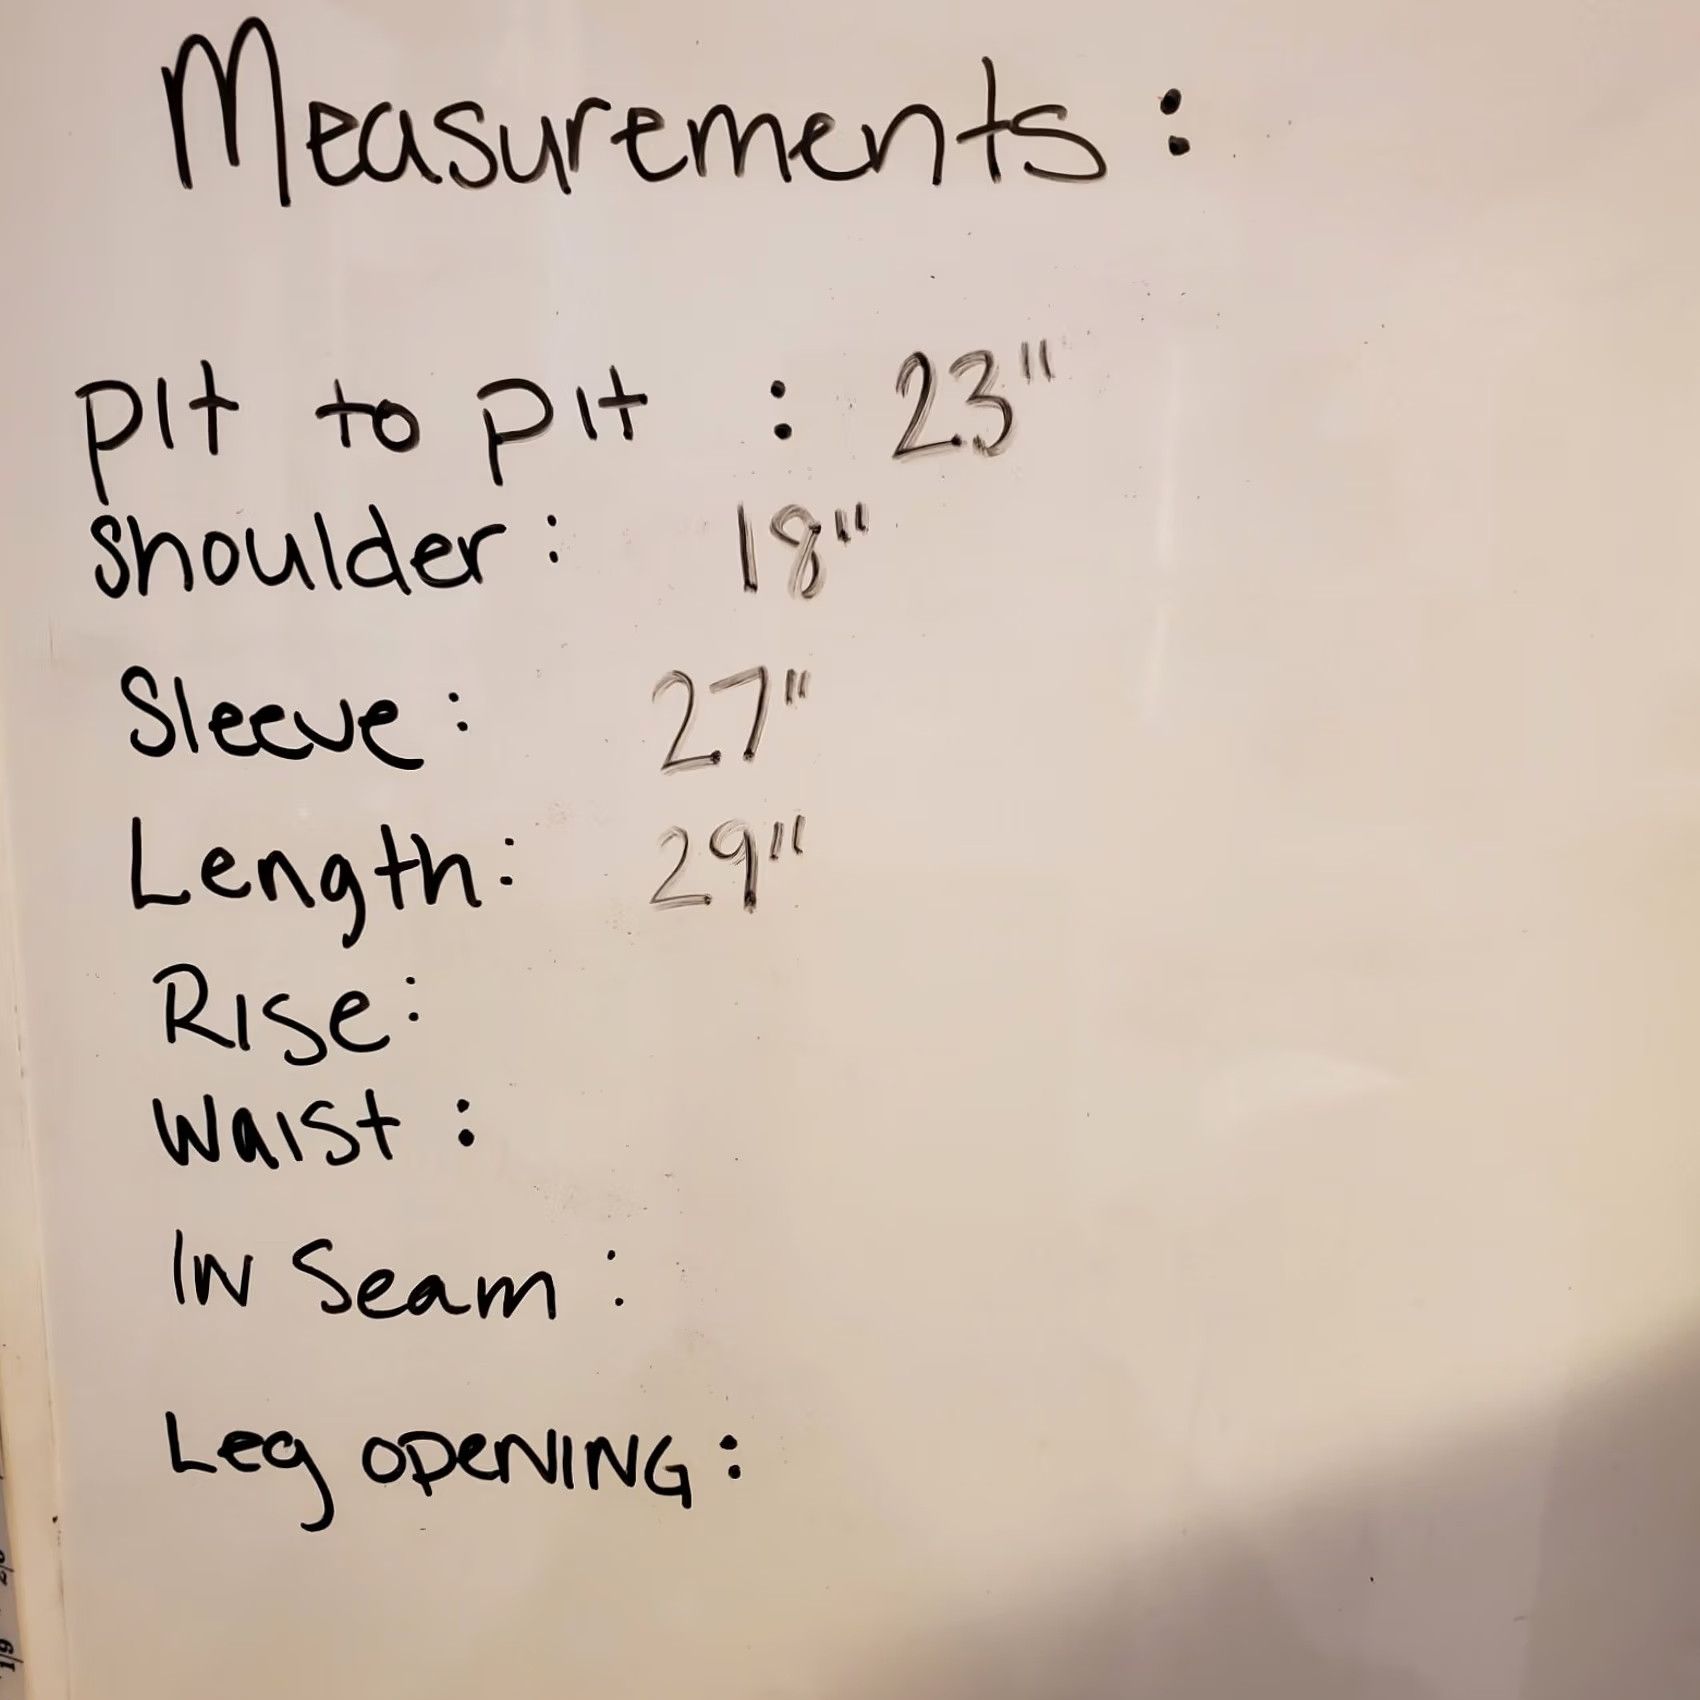 Measurements :
pit to pit : 23"
shoulder : 18"
Sleeve : 27"
Length : 29"
Rise :
Waist :
IN Seam :
Leg OPeNING :